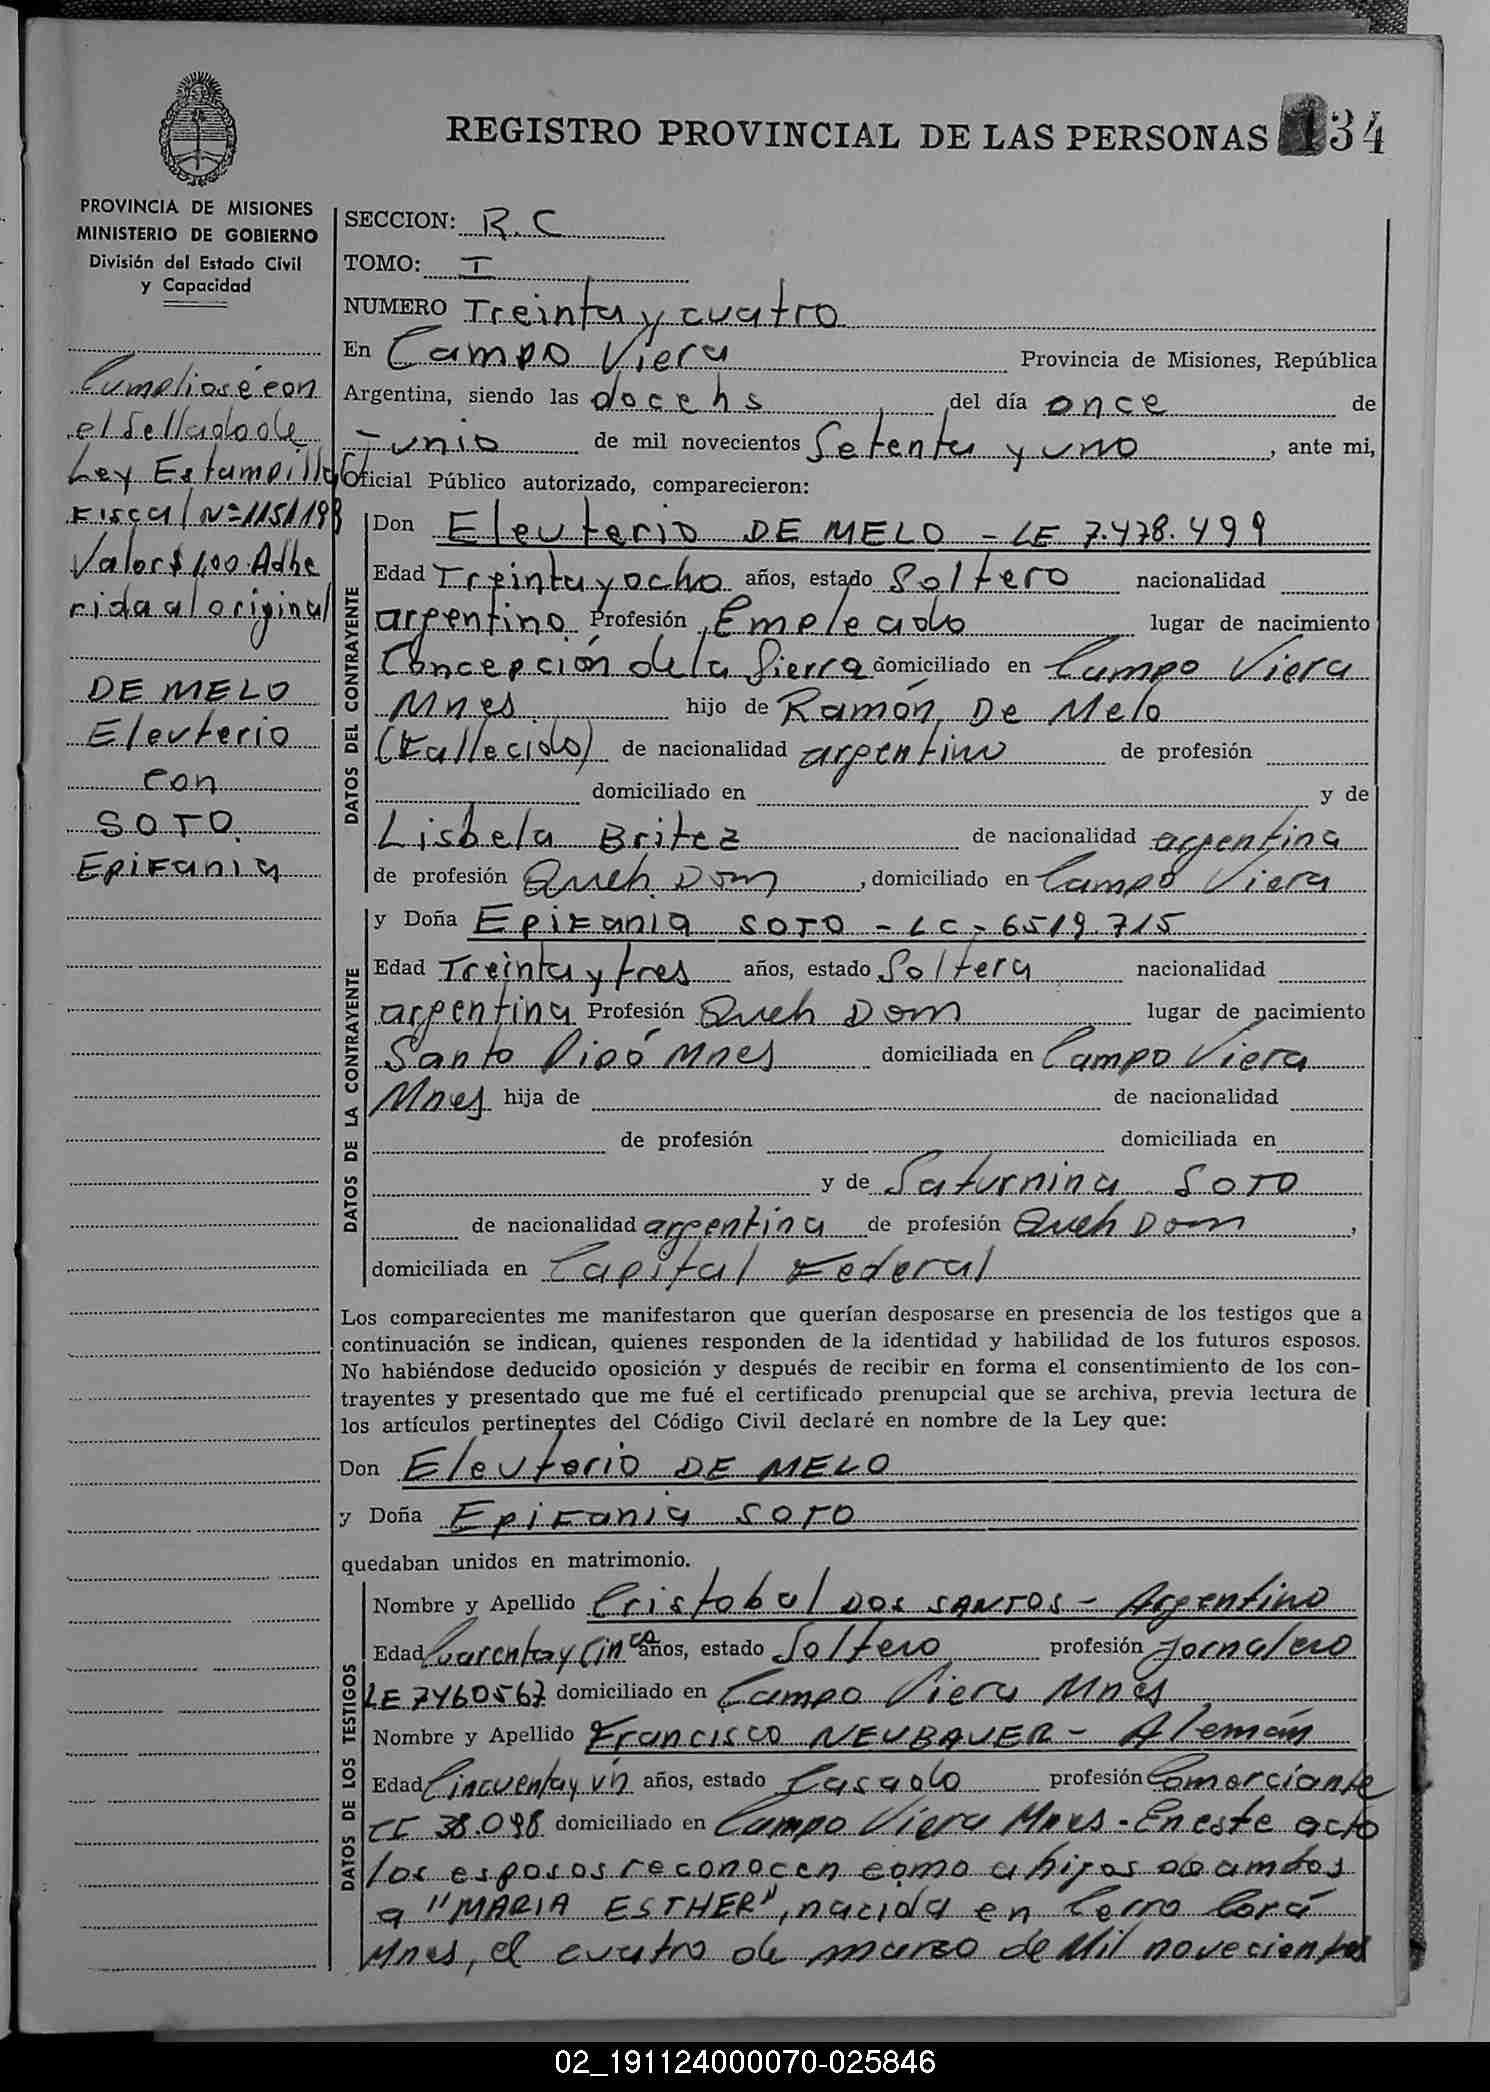 REGISTRO PROVINCIAL DE LAS PERSONAS 134
PROVINCIA DE MISIONES
MINISTERIO DE GOBIERNO
División del Estado Civil
y Capacidad
Cumpliose con
el Sellado de
Ley Estampilla
Fiscal Nº 115119
Valor $ 1,00 Adhe
rida al original
DE MELO
Eleuterio
con
SOTO
Epifania
SECCION: R.C
TOMO: I
NUMERO Treinta y cuatro
En Campo Viera Provincia de Misiones, República
Argentina, siendo las doce hs del día once de
Junio de mil novecientos Setenta y uno, ante mi,
Oficial Público autorizado, comparecieron:
DATOS DEL CONTRAYENTE
Don Eleuterio DE MELO - LE 7.478.499
Edad Treinta y ocho años, estado Soltero nacionalidad
argentino Profesión Empleado lugar de nacimiento
Concepción de la Sierra domiciliado en Campo Viera
Mnes hijo de Ramón De Melo
(Fallecido) de nacionalidad argentino de profesión
domiciliado en y de
Lisbela Britez de nacionalidad argentina
de profesión Queh. Dom, domiciliado en Campo Viera
DATOS DE LA CONTRAYENTE
y Doña Epifania SOTO - LC - 6519.715
Edad Treinta y tres años, estado Soltera nacionalidad
argentina Profesión Queh Dom lugar de nacimiento
Santo Pipó Mnes domiciliada en Campo Viera
Mnes hija de de nacionalidad
de profesión domiciliada en
y de Saturnina SOTO
de nacionalidad argentina de profesión Queh Dom,
domiciliada en Capital Federal
Los comparecientes me manifestaron que querían desposarse en presencia de los testigos que a
continuación se indican, quienes responden de la identidad y habilidad de los futuros esposos.
No habiéndose deducido oposición y después de recibir en forma el consentimiento de los con-
trayentes y presentado que me fué el certificado prenupcial que se archiva, previa lectura de
los artículos pertinentes del Código Civil declaré en nombre de la Ley que:
Don Eleuterio DE MELO
y Doña Epifania SOTO
quedaban unidos en matrimonio.
DATOS DE LOS TESTIGOS
Nombre y Apellido Cristobal DOS SANTOS - Argentino
Edad Cuarenta y Cinco años, estado Soltero profesión Jornalero
LE 7460567 domiciliado en Campo Viera Mnes
Nombre y Apellido Francisco NEUBAUER - Alemán
Edad Cincuenta y un años, estado Casado profesión Comerciante
CI 38.098 domiciliado en Campo Viera Mnes - En este acto
los esposos reconocen como a hijos de ambos
a "MARIA ESTHER", nacida en Cerro Corá
Mnes, el cuatro de marzo de Mil novecientos
02_191124000070-025846